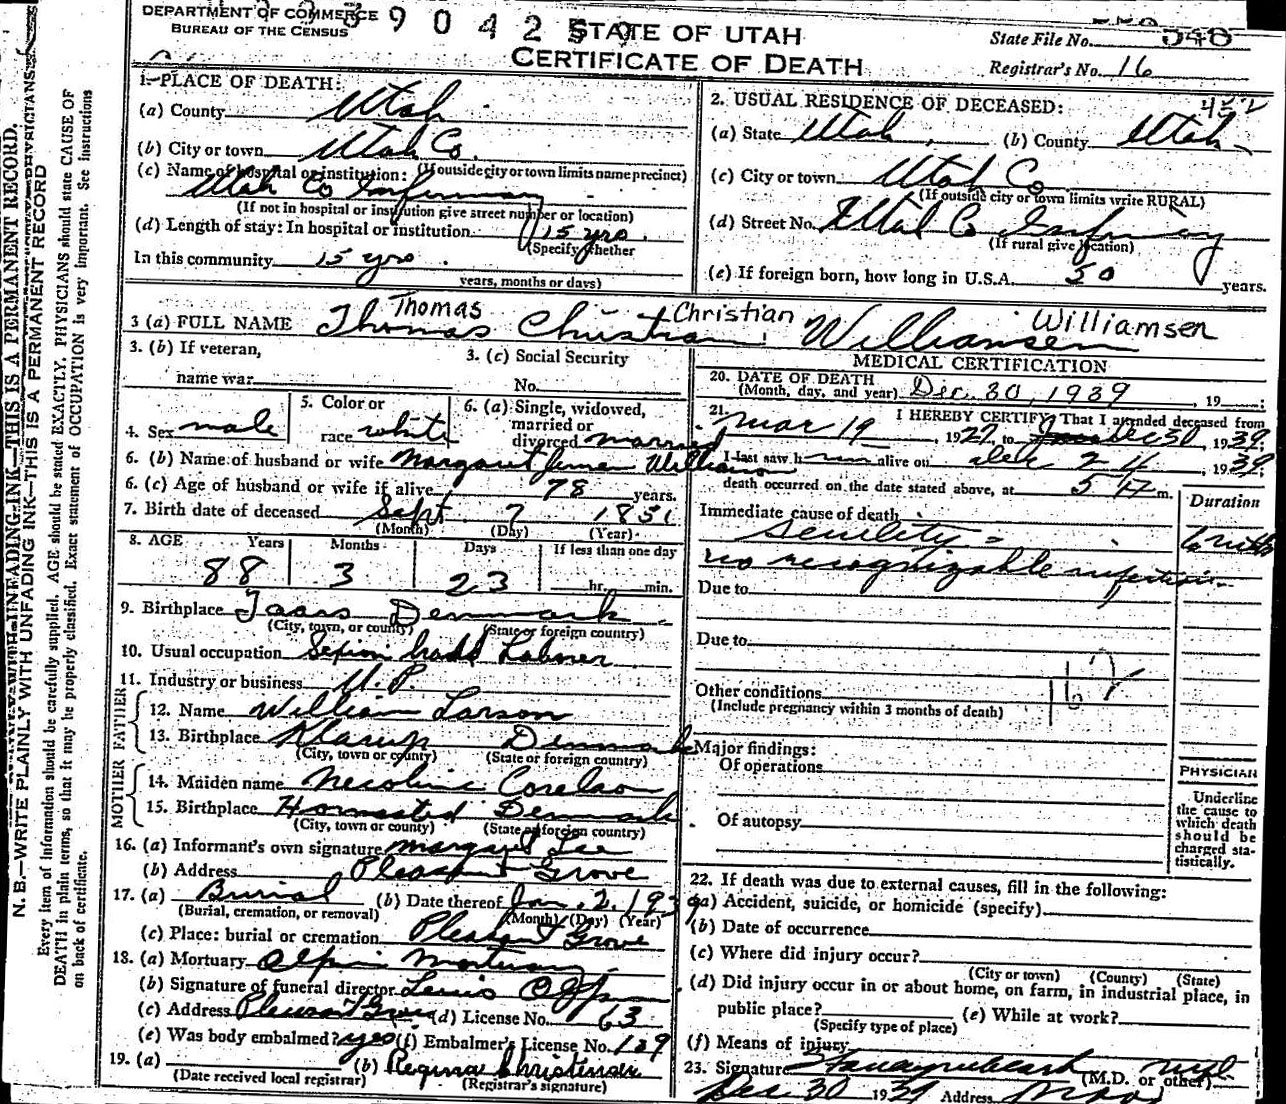 DEPARTMENT OF COMMERCE
BUREAU OF THE CENSUS
3 9 0 4 2 5 9
STATE OF UTAH
CERTIFICATE OF DEATH
State File No. 348
Registrar's No. 16
1.—PLACE OF DEATH:
(a) County Utah
(b) City or town Utah Co.
(If outside city or town limits name precinct)
(c) Name of hospital or institution:
Utah Co Infirmary
(If not in hospital or institution give street number or location)
(d) Length of stay: In hospital or institution 15 yrs.
(Specify whether
In this community 15 yrs.
years, months or days)
2. USUAL RESIDENCE OF DECEASED:
(a) State Utah (b) County Utah
(c) City or town Utah Co
(If outside city or town limits write RURAL)
(d) Street No. Utah Co Infirmary
(If rural give location)
(e) If foreign born, how long in U.S.A. 50 years.
Thomas Christian Williamsen
3 (a) FULL NAME Thomas Christian Williamsen
3. (b) If veteran,
name war
3. (c) Social Security
No.
4. Sex male
5. Color or
race white
6. (a) Single, widowed,
married or
divorced married
6. (b) Name of husband or wife Margaret Williamson
6. (c) Age of husband or wife if alive 78 years.
7. Birth date of deceased Sept. 7 1851
(Month) (Day) (Year)
8. AGE Years Months Days If less than one day
88 3 23 hr. min.
9. Birthplace Taars Denmark
(City, town, or county) (State or foreign country)
10. Usual occupation Labner
11. Industry or business U.P.
FATHER
12. Name William Larson
13. Birthplace Klarup Denmark
(City, town or county) (State or foreign country)
MOTHER
14. Maiden name Necoline
15. Birthplace Denmark
(City, town or county) (State or foreign country)
16. (a) Informant's own signature Margaret Lee
(b) Address Pleasant Grove
17. (a) Burial (b) Date thereof Jan. 2, 1939
(Burial, cremation, or removal) (Month) (Day) (Year)
(c) Place: burial or cremation Pleasant Grove
18. (a) Mortuary Mortuary
(b) Signature of funeral director
(c) Address Pleasant Grove (d) License No. 63
(e) Was body embalmed? yes (f) Embalmer's License No. 139
19. (a) (b) Regina Christensen
(Date received local registrar) (Registrar's signature)
MEDICAL CERTIFICATION
20. DATE OF DEATH
(Month, day, and year) Dec. 30, 1939, 19
21. I HEREBY CERTIFY, That I attended deceased from
Mar 19, 1927 to Dec 30, 1939
I last saw him alive on Dec 24, 1939
death occurred on the date stated above, at m.
Duration
Immediate cause of death
Senility
no recognizable infection
Due to
Due to
162
Other conditions
(Include pregnancy within 3 months of death)
Major findings:
Of operations
Of autopsy
PHYSICIAN
Underline
the cause to
which death
should be
charged sta-
tistically.
22. If death was due to external causes, fill in the following:
(a) Accident, suicide, or homicide (specify)
(b) Date of occurrence
(c) Where did injury occur?
(City or town) (County) (State)
(d) Did injury occur in or about home, on farm, in industrial place, in
public place? (e) While at work?
(Specify type of place)
(f) Means of injury
23. Signature
(M.D. or other)
Dec 30 1939 Address
N. B.—WRITE PLAINLY WITH UNFADING INK—THIS IS A PERMANENT RECORD
Every item of information should be carefully supplied. AGE should be stated EXACTLY. PHYSICIANS should state CAUSE OF
DEATH in plain terms, so that it may be properly classified. Exact statement of OCCUPATION is very important. See instructions
on back of certificate.